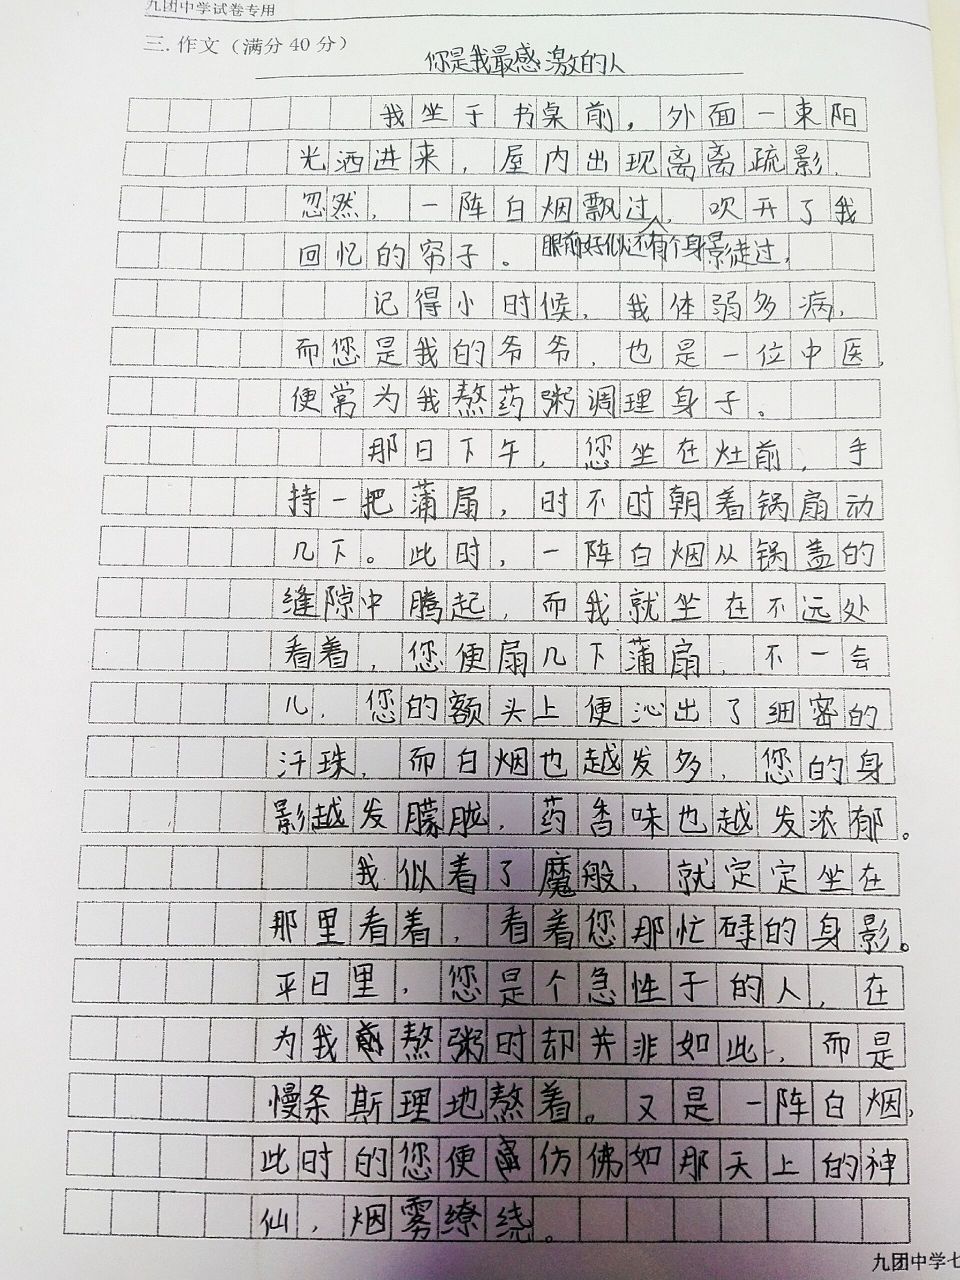 九团中学试卷专用
三.作文（满分40分）
你是我最感激的人
我坐于书桌前，外面一束阳
光洒进来，屋内出现离离疏影.
忽然，一阵白烟飘过，吹开了我
眼前好似还有个身影走过，
回忆的帘子。
记得小时候，我体弱多病，
而您是我的爷爷，也是一位中医，
便常为我熬药粥调理身子。
那日下午，您坐在灶前，手
持一把蒲扇，时不时朝着锅扇动
几下。此时，一阵白烟从锅盖的
缝隙中腾起，而我就坐在不远处
看着，您便扇几下蒲扇，不一会
儿，您的额头上便沁出了细密的
汗珠，而白烟也越发多，您的身
影越发朦胧，药香味也越发浓郁。
我似着了魔般，就定定坐在
那里看着，看着您那忙碌的身影。
平日里，您是个急性子的人，在
为我熬粥时却并非如此，而是
慢条斯理地熬着。又是一阵白烟，
此时的您便仿佛如那天上的神
仙，烟雾缭绕。
九团中学七